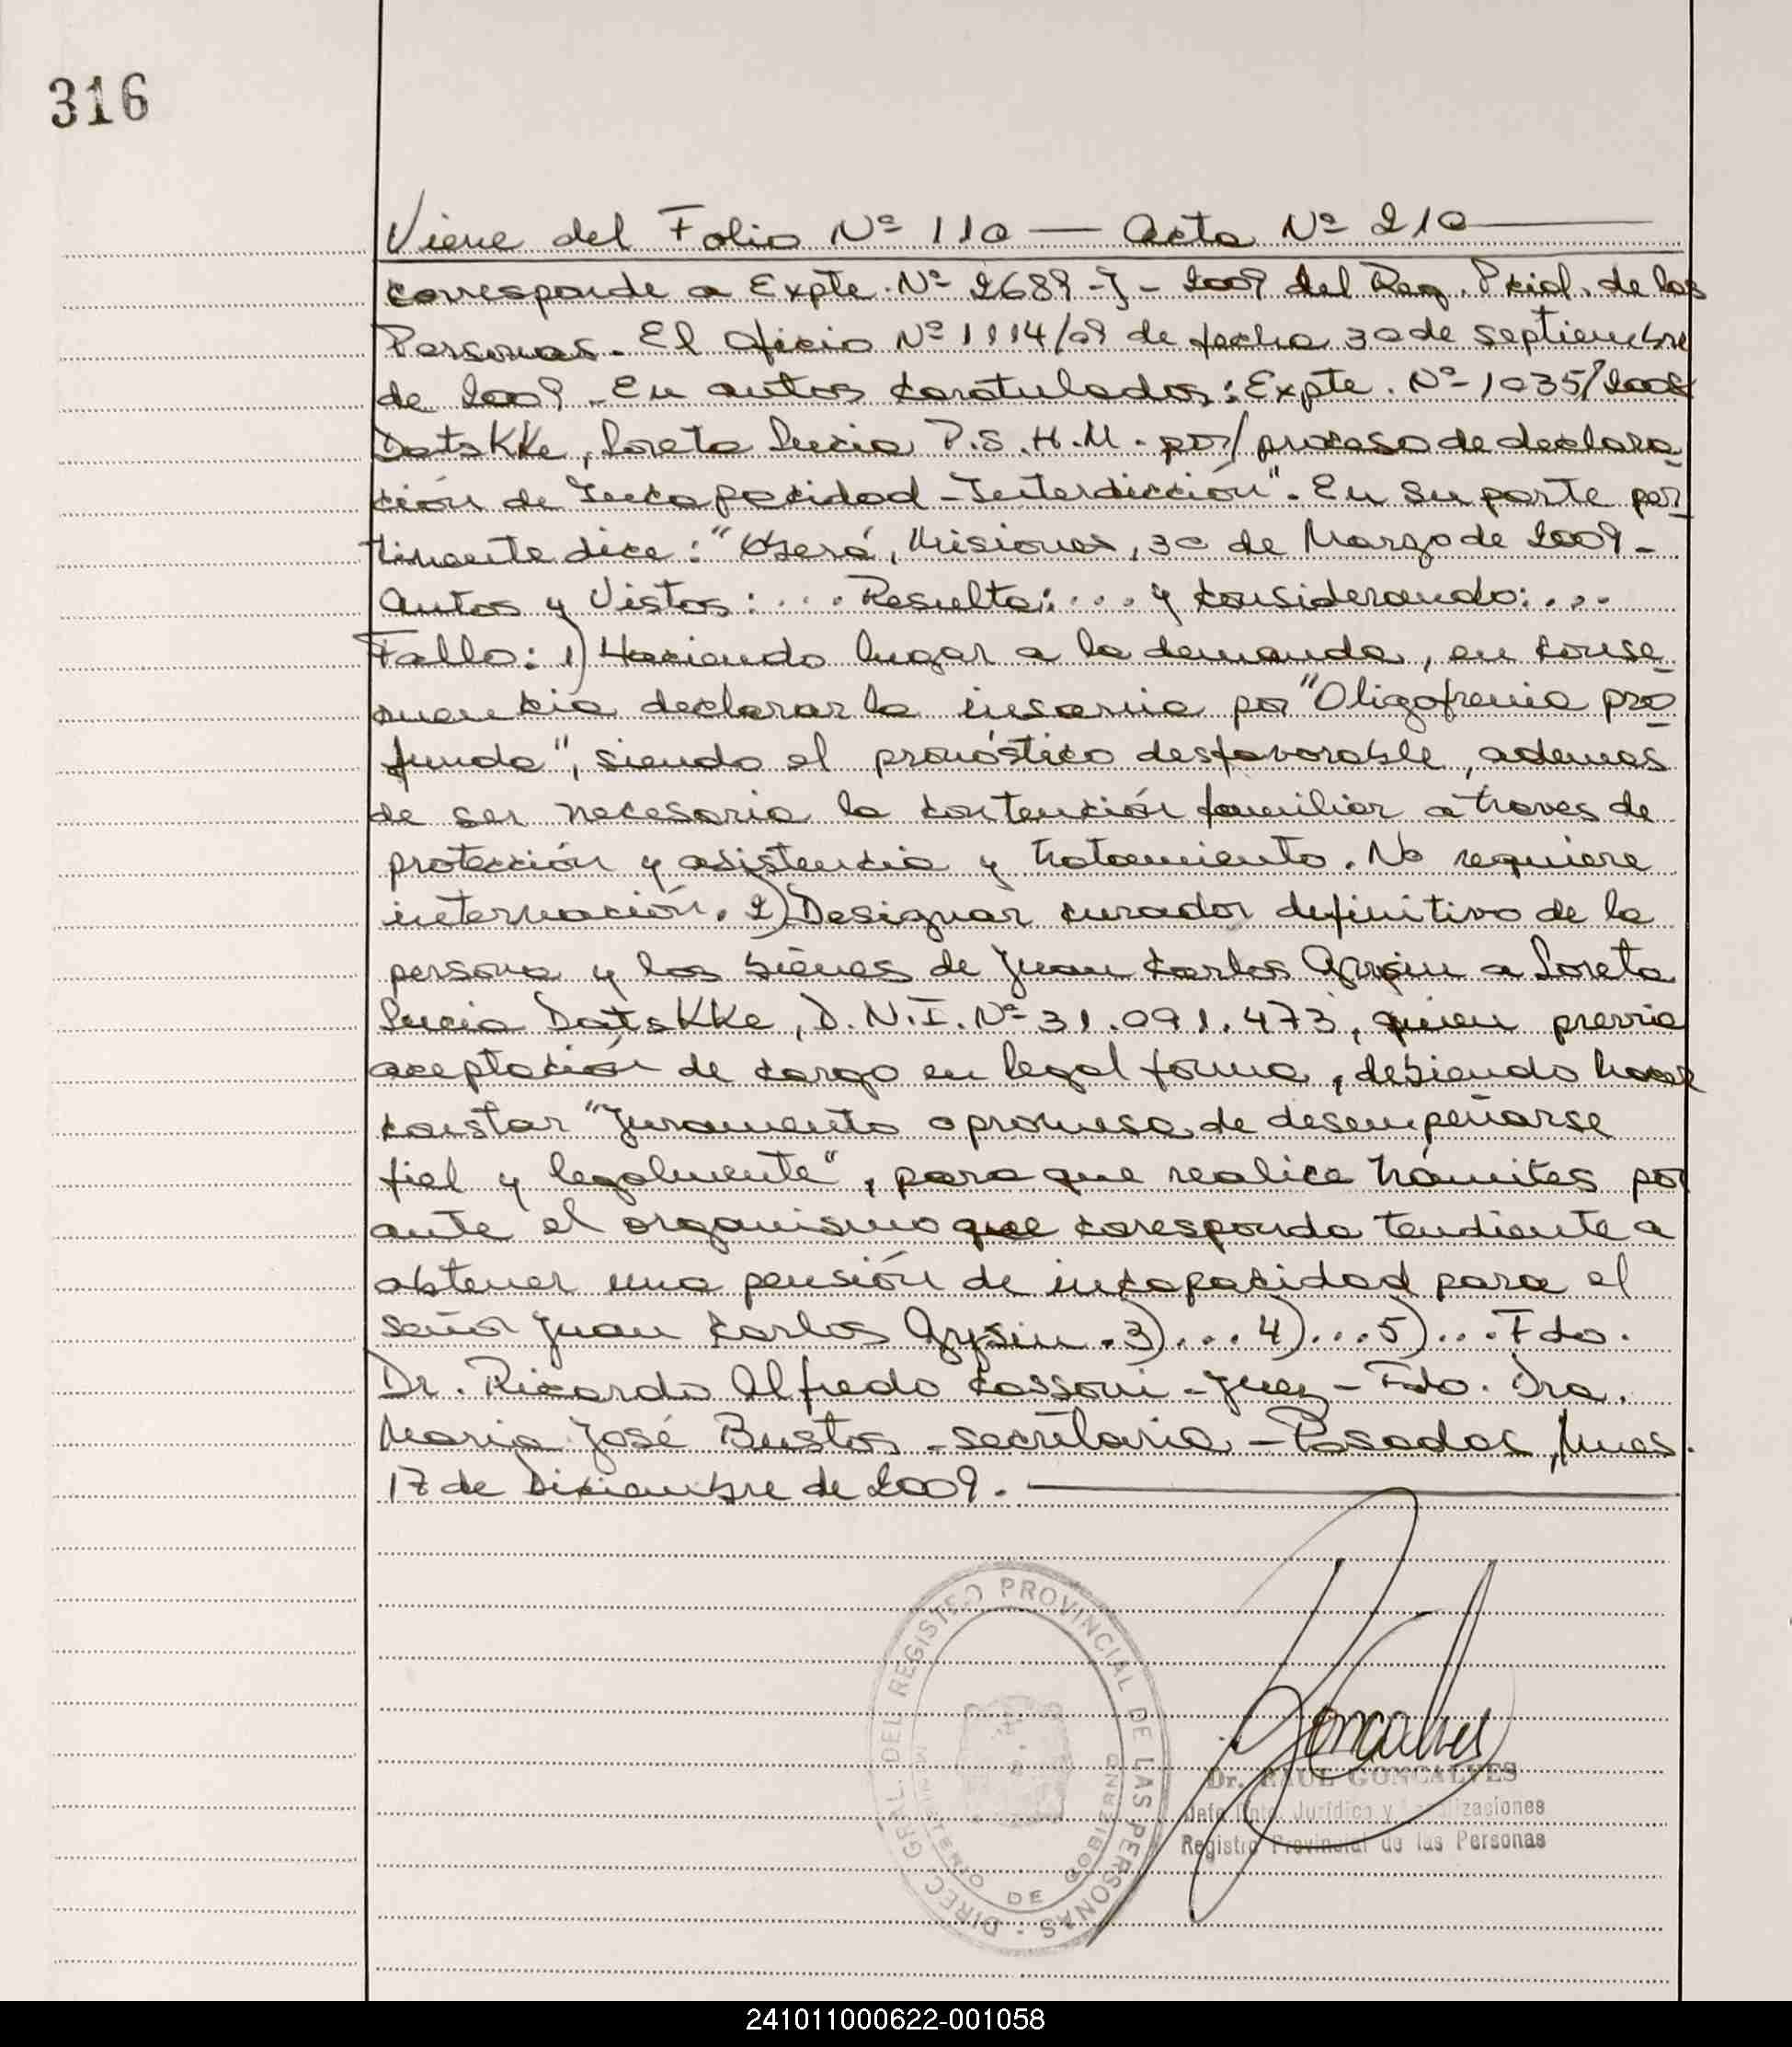 316
Viene del Folio Nº 110 — Acta Nº 210
corresponde a Expte. Nº 2689-J-2009 del Reg. Pcial. de las
Personas. El oficio Nº 1114/09 de fecha 30 de septiembre
de 2009. En autos caratulados: Expte. Nº 1035/2008
Datskke, Loreta Lucia P.S.H.M. por/ proceso de declara-
ción de Incapacidad - Interdicción". En su parte per-
tinente dice: "Oberá, Misiones, 30 de Marzo de 2009.
Autos y Vistos: .... Resulta: .... y considerando: ...
Fallo: 1) Haciendo lugar a la demanda, en conse-
cuencia declarar la insania por "Oligofrenia pro-
funda", siendo el pronóstico desfavorable, ademas
de ser necesaria la contención familiar a traves de
protección y asistencia y tratamiento. No requiere
internación. 2) Designar curador definitivo de la
persona y los bienes de Juan Carlos Gysin a Loreta
Lucia Datskke, D.N.I. Nº 31.091.473, quien previa
aceptación de cargo en legal forma, debiendo hacer
constar "Juramento o promesa de desempeñarse
fiel y legalmente", para que realice trámites por
ante el organismo que coresponda tendiente a
obtener una pensión de incapacidad para el
señor Juan Carlos Gysin. 3)... 4)... 5)... Fdo.
Dr. Ricardo Alfredo Cassoni - Juez - Fdo. Dra.
Maria José Bustos - secretaria - Posadas, Mnes.
17 de Diciembre de 2009.
DIREC. GRAL. DEL REGISTRO PROVINCIAL DE LAS PERSONAS -
MINISTERIO DE GOBIERNO
Goncalves
Dr. RAUL GONCALVES
Jefe Dpto. Jurídico y
Registro Provincial de las Personas
241011000622-001058